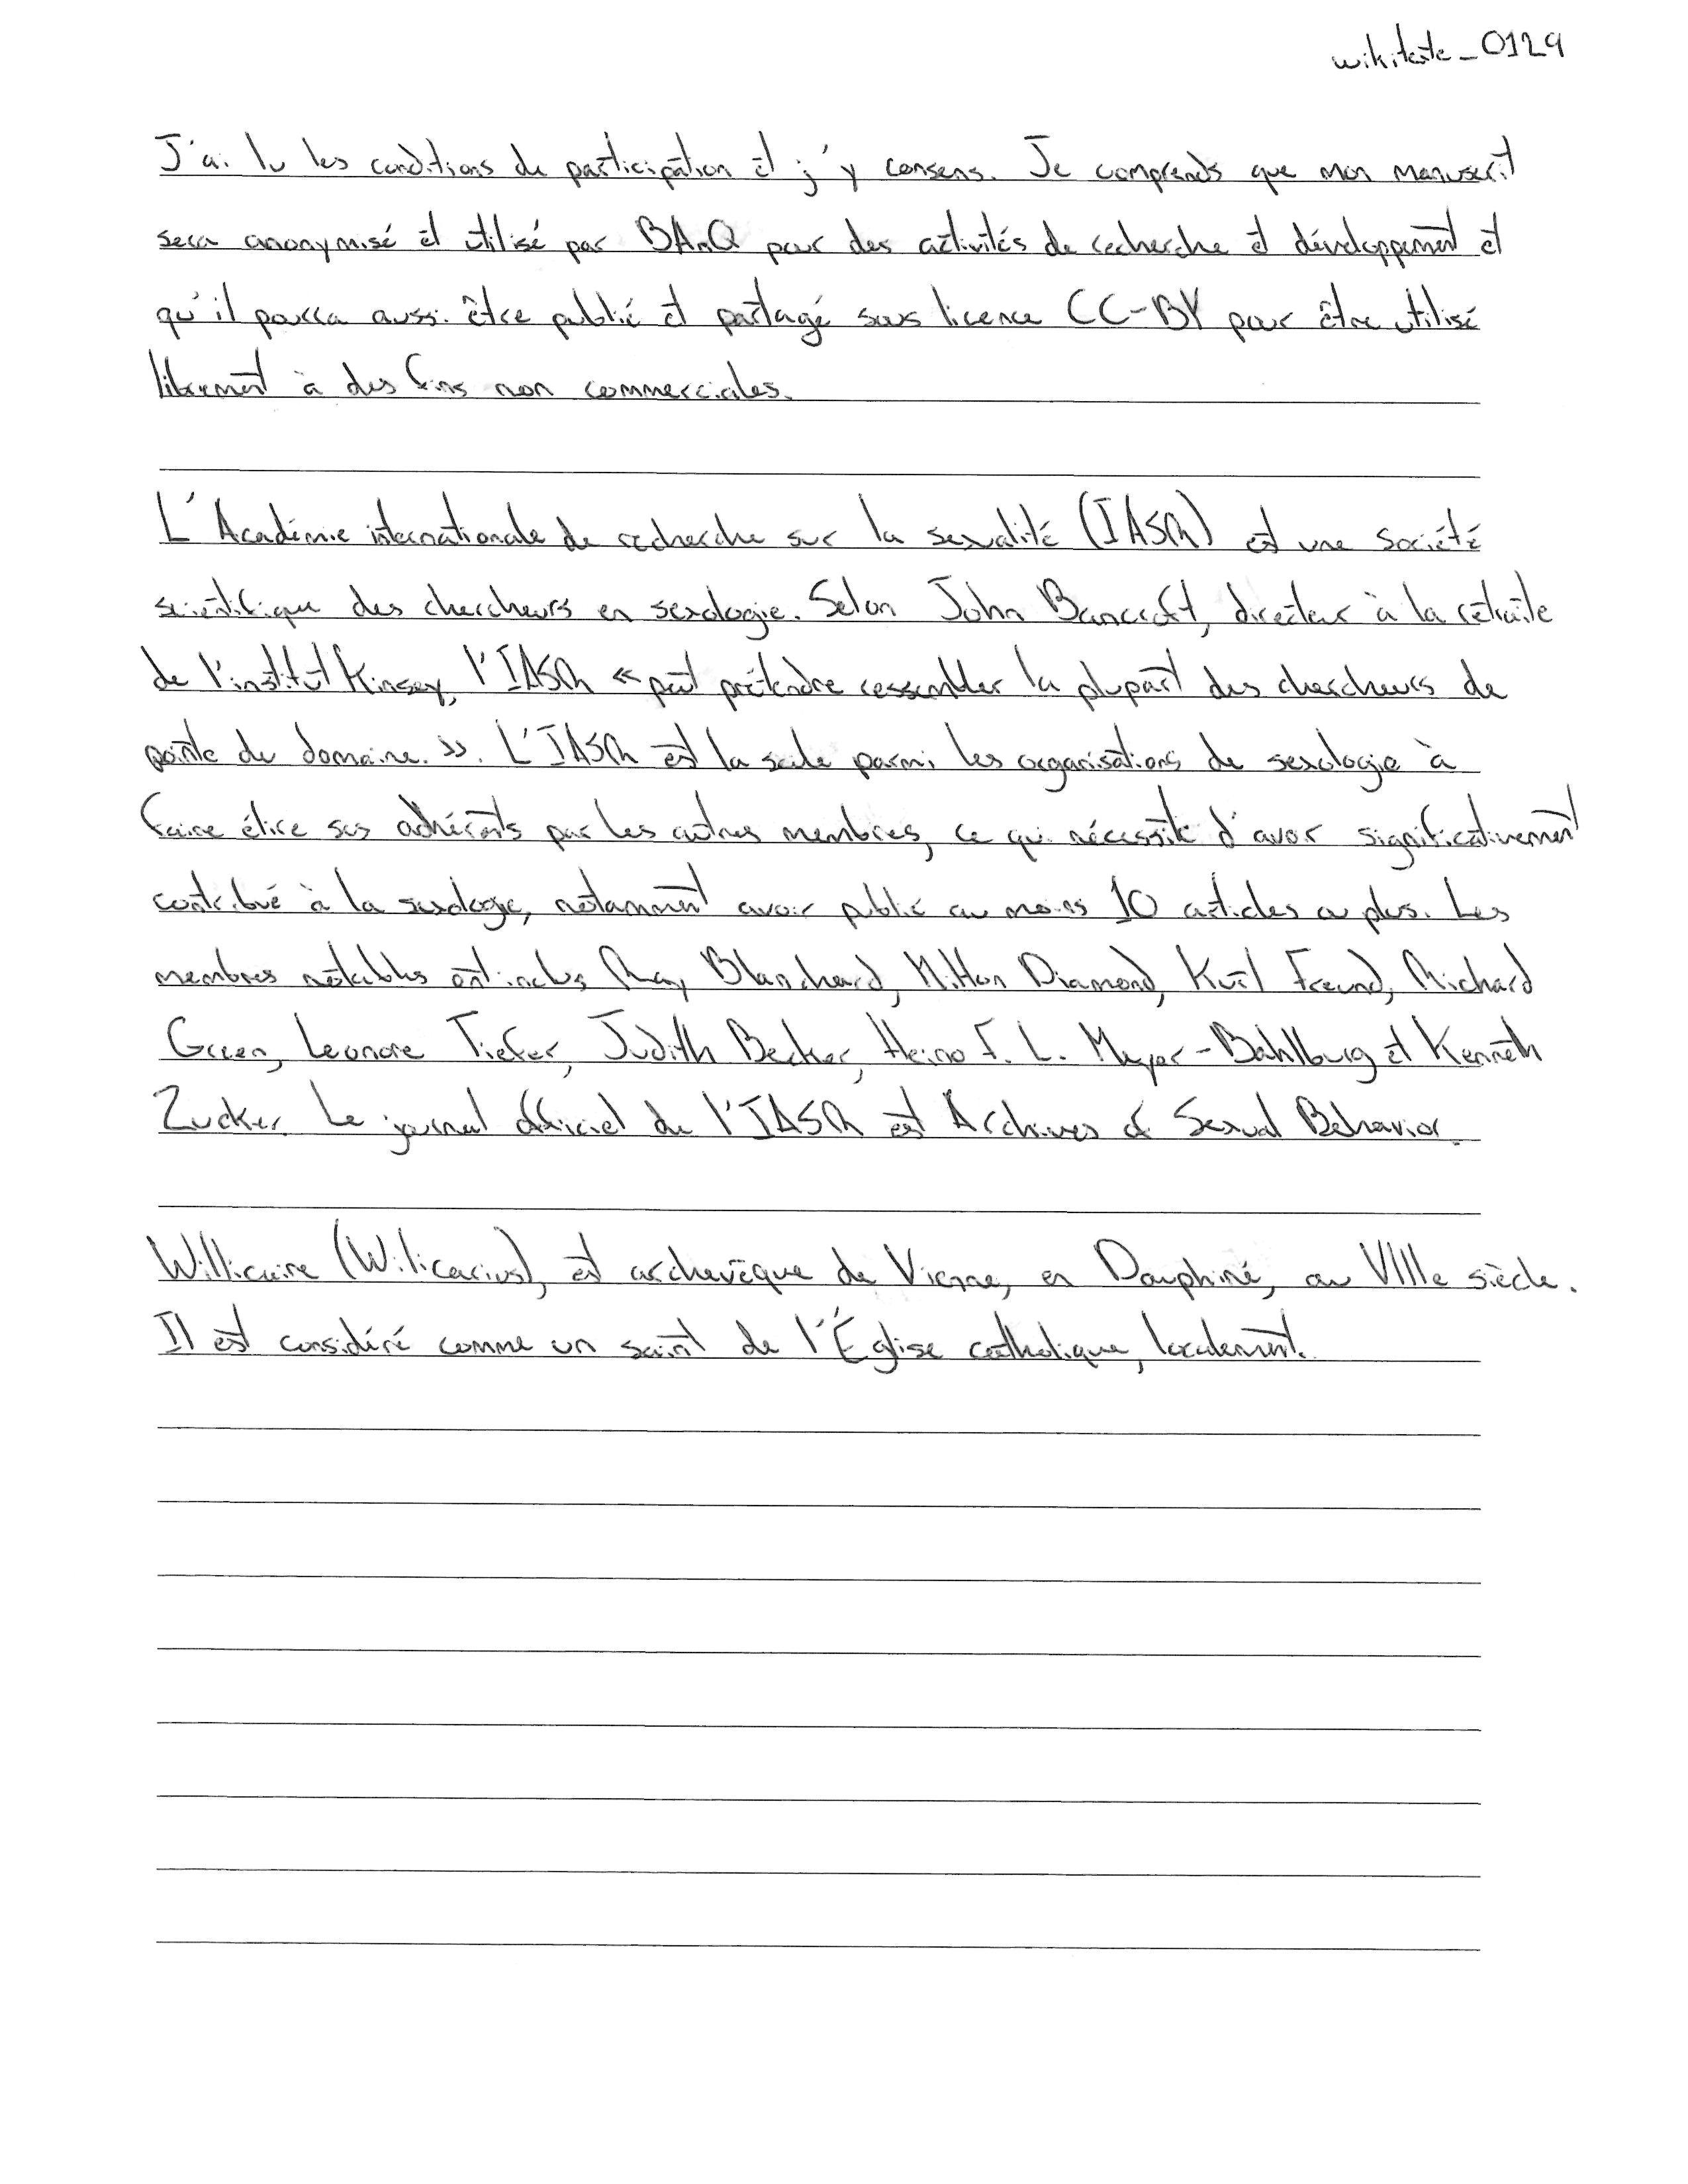 wikitexte_0129
J'ai lu les conditions de participation et j'y consens. Je comprends que mon manuscrit
sera anonymisé et utilisé par BAnQ pour des activités de recherche et développement et
qu'il pourra aussi être publié et partagé sous licence CC-BY pour être utilisé
librement à des fins non commerciales.
L'Académie internationale de recherche sur la sexualité (IASR) est une société
scientifique des chercheurs en sexologie. Selon John Bancroft, directeur à la retraite
de l'institut Kinsey, l'IASR « peut prétendre rassembler la plupart des chercheurs de
pointe du domaine. ». L'IASR est la seule parmi les organisations de sexologie à
faire élire ses adhérents par les autres membres, ce qui nécessite d'avoir significativement
contribué à la sexologie, notamment avoir publié au moins 10 articles ou plus. Les
membres notables ont inclus Ray Blanchard, Milton Diamond, Kurt Freund, Richard
Green, Leonore Tiefer, Judith Becker, Heino F. L. Meyer-Bahlburg et Kenneth
Zucker. Le journal officiel de l'IASR est Archives of Sexual Behavior.
Willicaire (Wilicarius), est archevêque de Vienne, en Dauphiné, au VIIIe siècle.
Il est considéré comme un saint de l'Église catholique, localement.